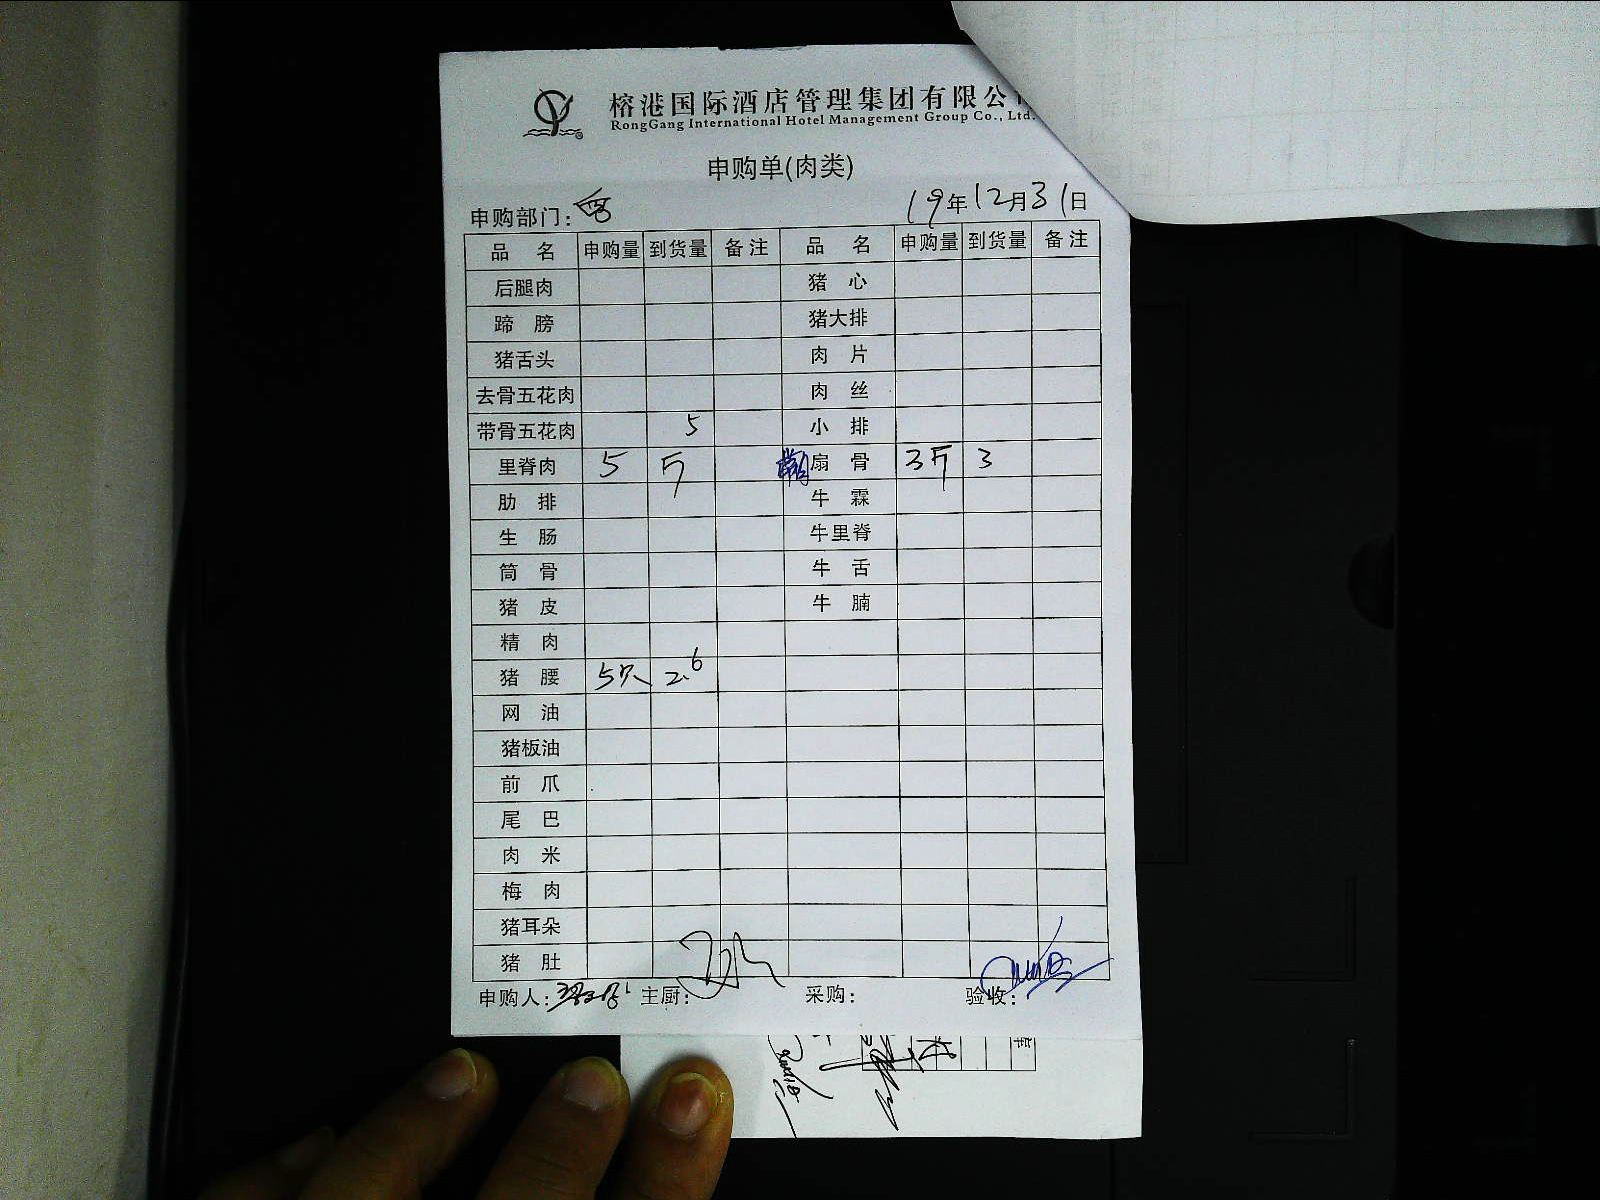 榕港国际酒店管理集团有限公
RongGang International Hotel Management Group Co., Ltd.
申购单(肉类)
申购部门: 19年12月31日
品名 申购量 到货量 备注 品名 申购量 到货量 备注
后腿肉 猪心
蹄膀 猪大排
猪舌头 肉片
去骨五花肉 肉丝
带骨五花肉 5 小排
里脊肉 5 斤 扇骨 3斤 3
肋排 牛霖
生肠 牛里脊
筒骨 牛舌
猪皮 牛腩
精肉
猪腰 5只 2.6
网油
猪板油
前爪
尾巴
肉米
梅肉
猪耳朵
猪肚
申购人: 主厨: 采购: 验收: